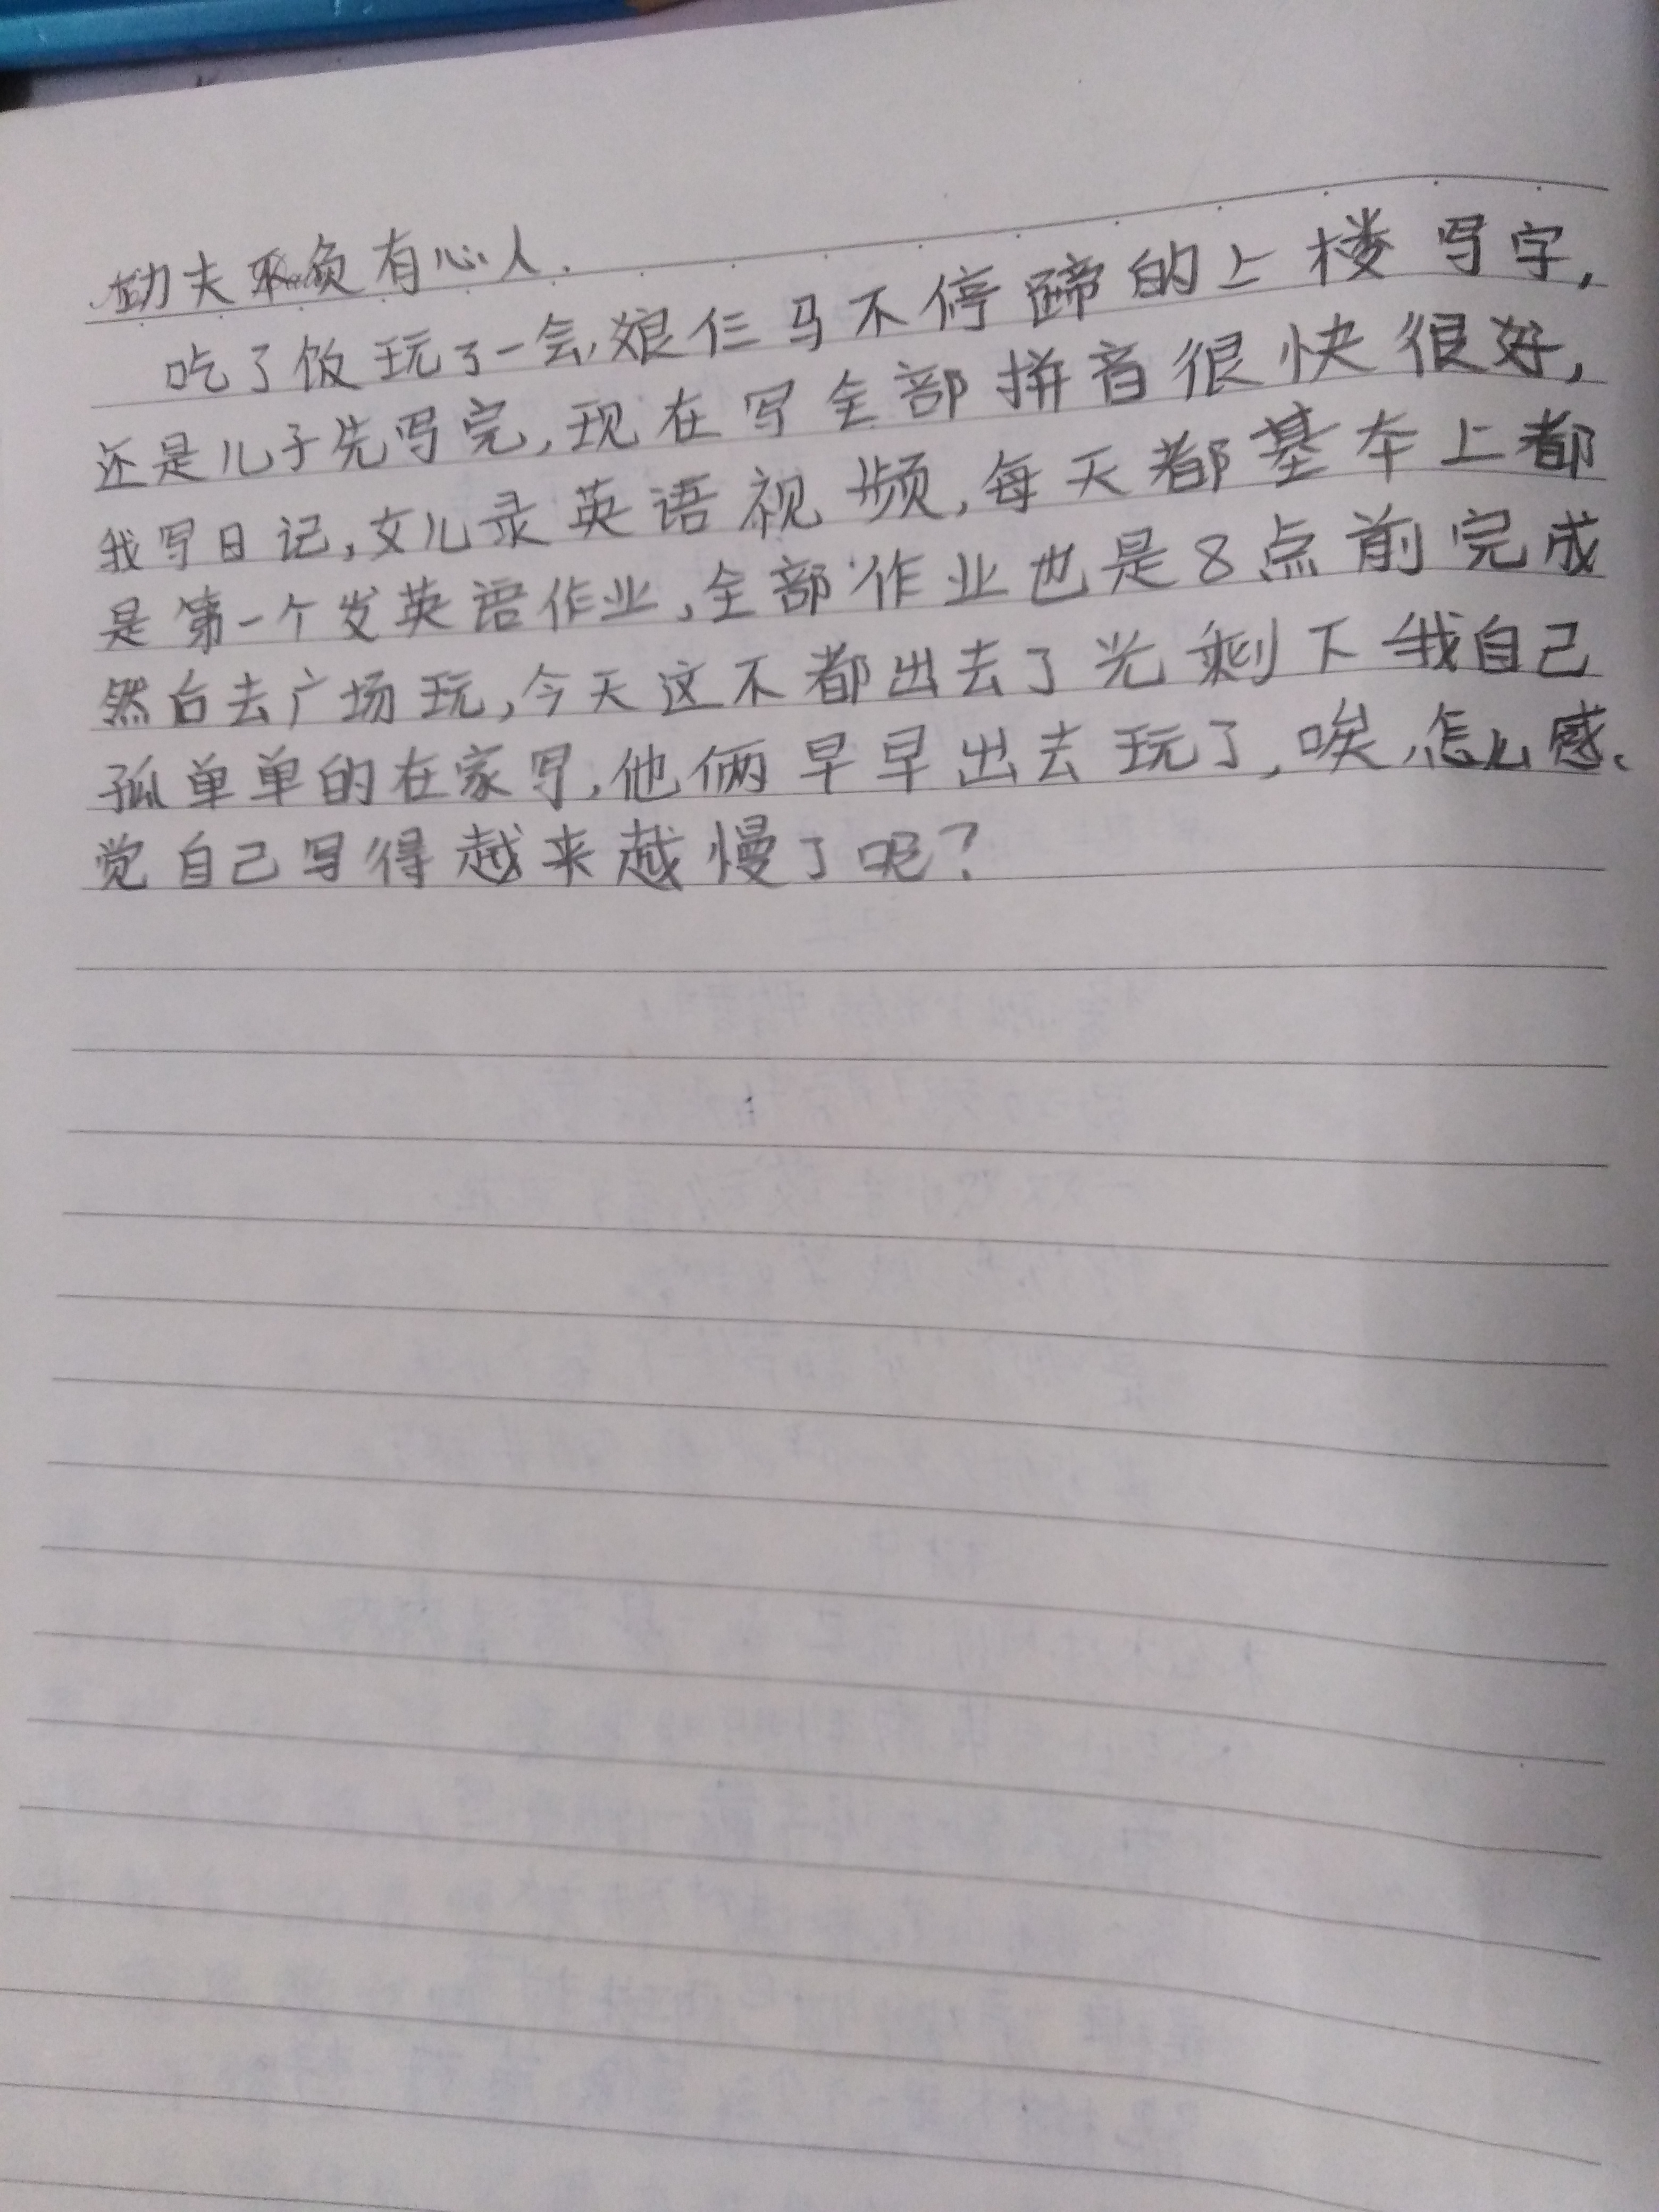 功夫不负有心人.
吃了饭玩了一会,娘仨马不停蹄的上楼写字,
还是儿子先写完,现在写全部拼音很快很好,
我写日记,女儿录英语视频,每天都基本上都
是第一个发英语作业,全部作业也是8点前完成
然后去广场玩,今天这不都出去了光剩下我自己
孤单单的在家写,他俩早早出去玩了,唉,怎么感
觉自己写得越来越慢了呢?